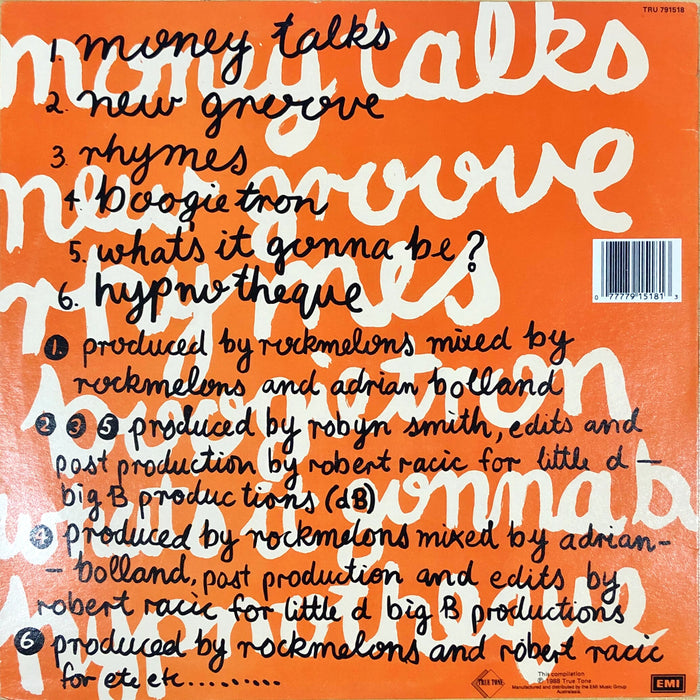 TRU 791518
1. money talks
2. new groove
3. rhymes
4. boogietron
5. whats it gonna be?
6. hypnotheque
money talks
new groove
rhymes
boogietron
what's it gonna b
hypnotheque
0 77779 15181 3
1. produced by rockmelons mixed by
rockmelons and adrian bolland
2 3 5 produced by robyn smith, edits and
post production by robert racic for little d —
big B productions (dB)
4 produced by rockmelons mixed by adrian —
— bolland, post production and edits by
robert racic for little d big B productions
6 produced by rockmelons and robert racic
for etc etc..........
TRUE TONE
This compilation
℗ 1988 True Tone
Manufactured and distributed by the EMI Music Group
Australasia.
EMI